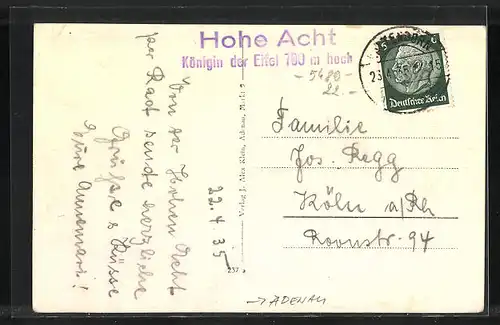 Hohe Acht
Königin der Eifel 760 m hoch
- 5489 -
22.-
23.4.35
Deutsches Reich
Von der Hohen Acht
per Rad sende herzliche
Grüße & Küsse
Eure Annemarie!
22.4.35
Verlag J. Adex Klein, Adenau, Markt
237
Familie
Jos. Regg
Köln a/Rh
Roonstr. 94
→ ADENAU